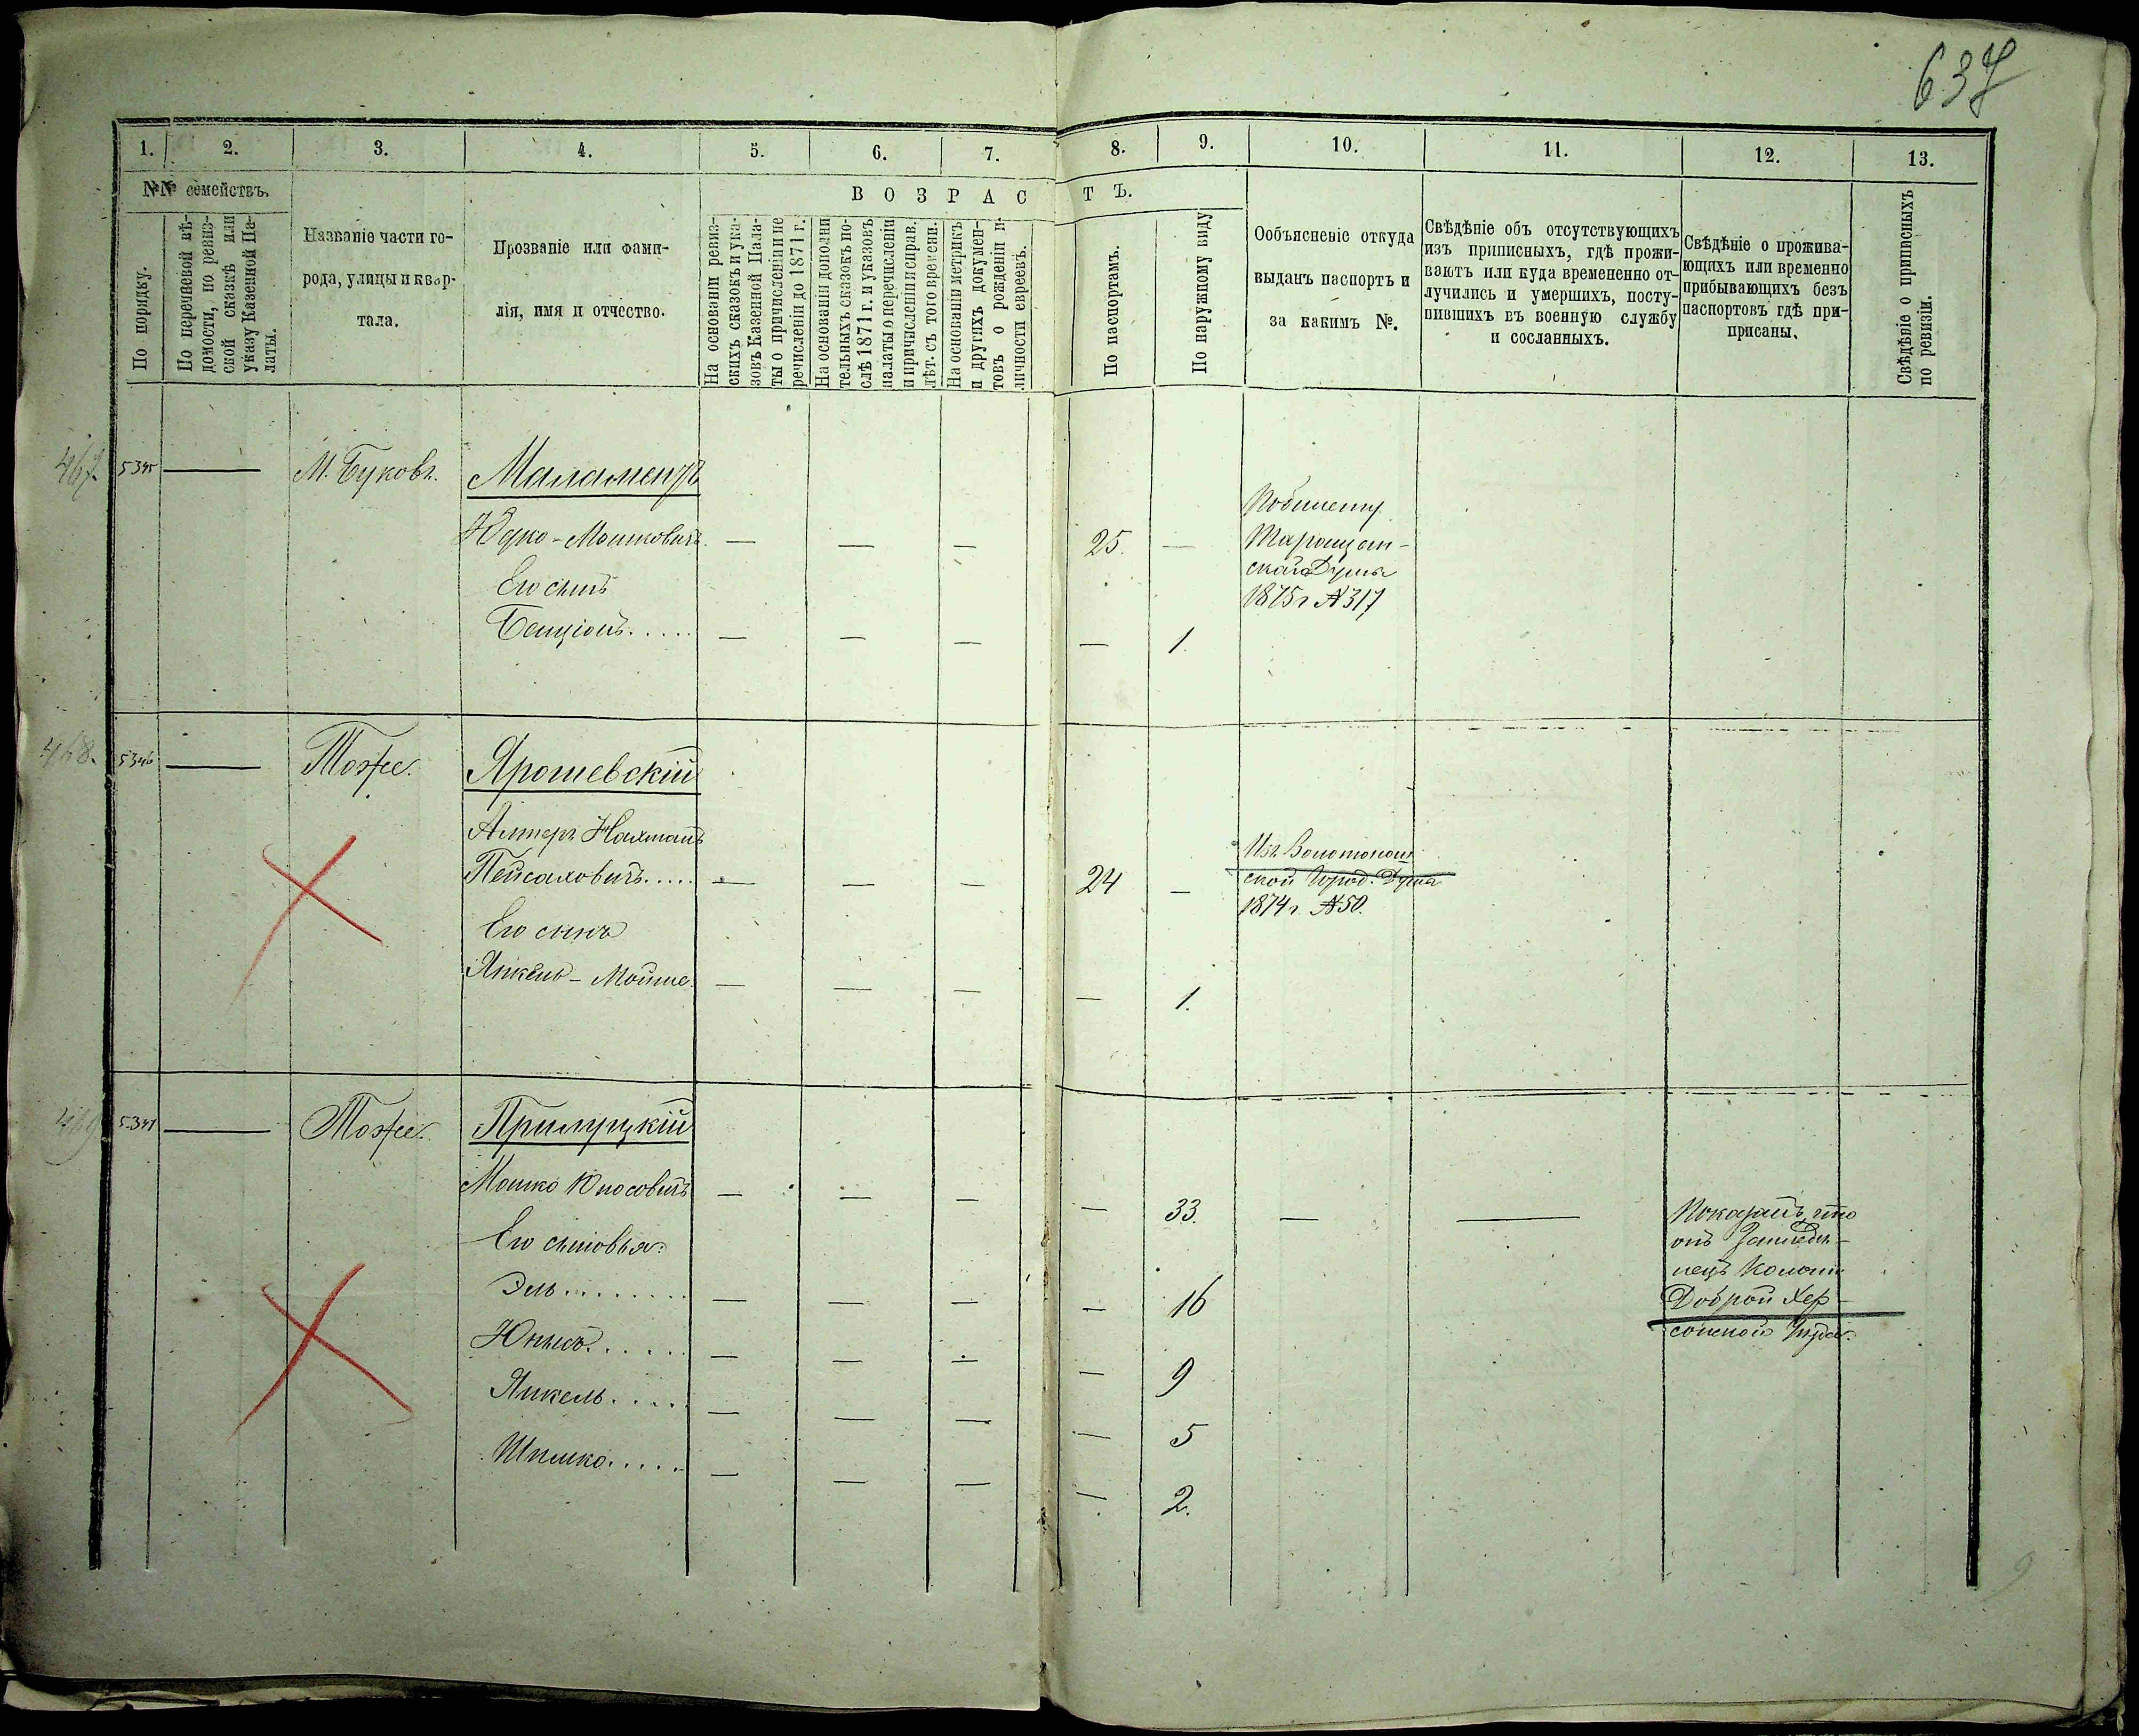 637
1. 2. 3. 4. 5. 6. 7. 8. 9. 10. 11. 12. 13.
№№ семействъ.
ВОЗРАСТЪ.
По порядку.
По перечневой вѣ-
домости, по ревиз-
ской сказкѣ или
указу Казенной Па-
латы.
Названіе части го-
рода, улицы и квар-
тала.
Прозваніе или фами-
лія, имя и отчество.
На основаніи ревиз-
скихъ сказокъ и ука-
зовъ Казенной Пала-
ты о причисленіи и пе
речисленіи до 1871 г.
На основаніи дополни
тельныхъ сказокъ по-
слѣ 1871 г. и указовъ
палаты о перечисленіи
и причисленіи и справ.
лѣт. съ того времени.
На основаніи метрикъ
и другихъ докумен-
товъ о рожденіи и
личности евреевъ.
По паспортамъ.
По наружному виду
Ообъясненіе откуда
выданъ паспортъ и
за какимъ №.
Свѣдѣніе объ отсутствующихъ
изъ приписныхъ, гдѣ прожи-
ваютъ или куда временено от-
лучились и умершихъ, посту-
пившихъ въ военную службу
и сосланныхъ.
Свѣдѣніе о прожива-
ющихъ или временно
прибывающихъ безъ
паспортовъ гдѣ при-
писаны.
Свѣдѣніе о приписныхъ
по ревизіи.
467. 5345 — М. Буковъ. Маламендъ
Юдко-Мошковичъ. — — — 25. —
Его сынъ
Бенціонъ..... — — — — 1.
По билету
Таращан-
ской Думы
1875 г №317
468. 5346 — Тоже. Ярошевскій
Алтеръ Нахманъ
Пейсаховичъ.... — — — 24 —
Его сынъ
Янкель-Мойше. — — — — 1.
Изъ Золотонош
ской Город. Думы
1874 г. №50.
469 5347 — Тоже. Прилуцкій
Мошко Юносовичъ — — — — 33. — —
Его сыновья:
Эль........ — — — — 16
Юнысъ...... — — — — 9
Янкель..... — — — — 5
Шимко..... — — — — 2.
Показалъ, что
онъ
Колоніи
Доброй Хер-
сонской Губер.
9